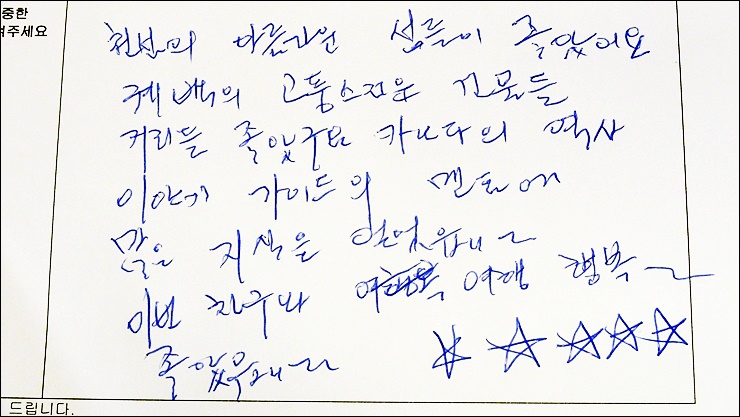 중한
겨주세요
천섬의 아름다운 섬들이 좋았어요
퀘백의 고풍스러운 건물들
거리들 좋았구요 카나다의 역사
이야기 가이드의 멘트에
많은 지식을 얻었읍니다
이번 친구와 여행 행복
좋았읍니다 ☆☆☆☆☆
드립니다.